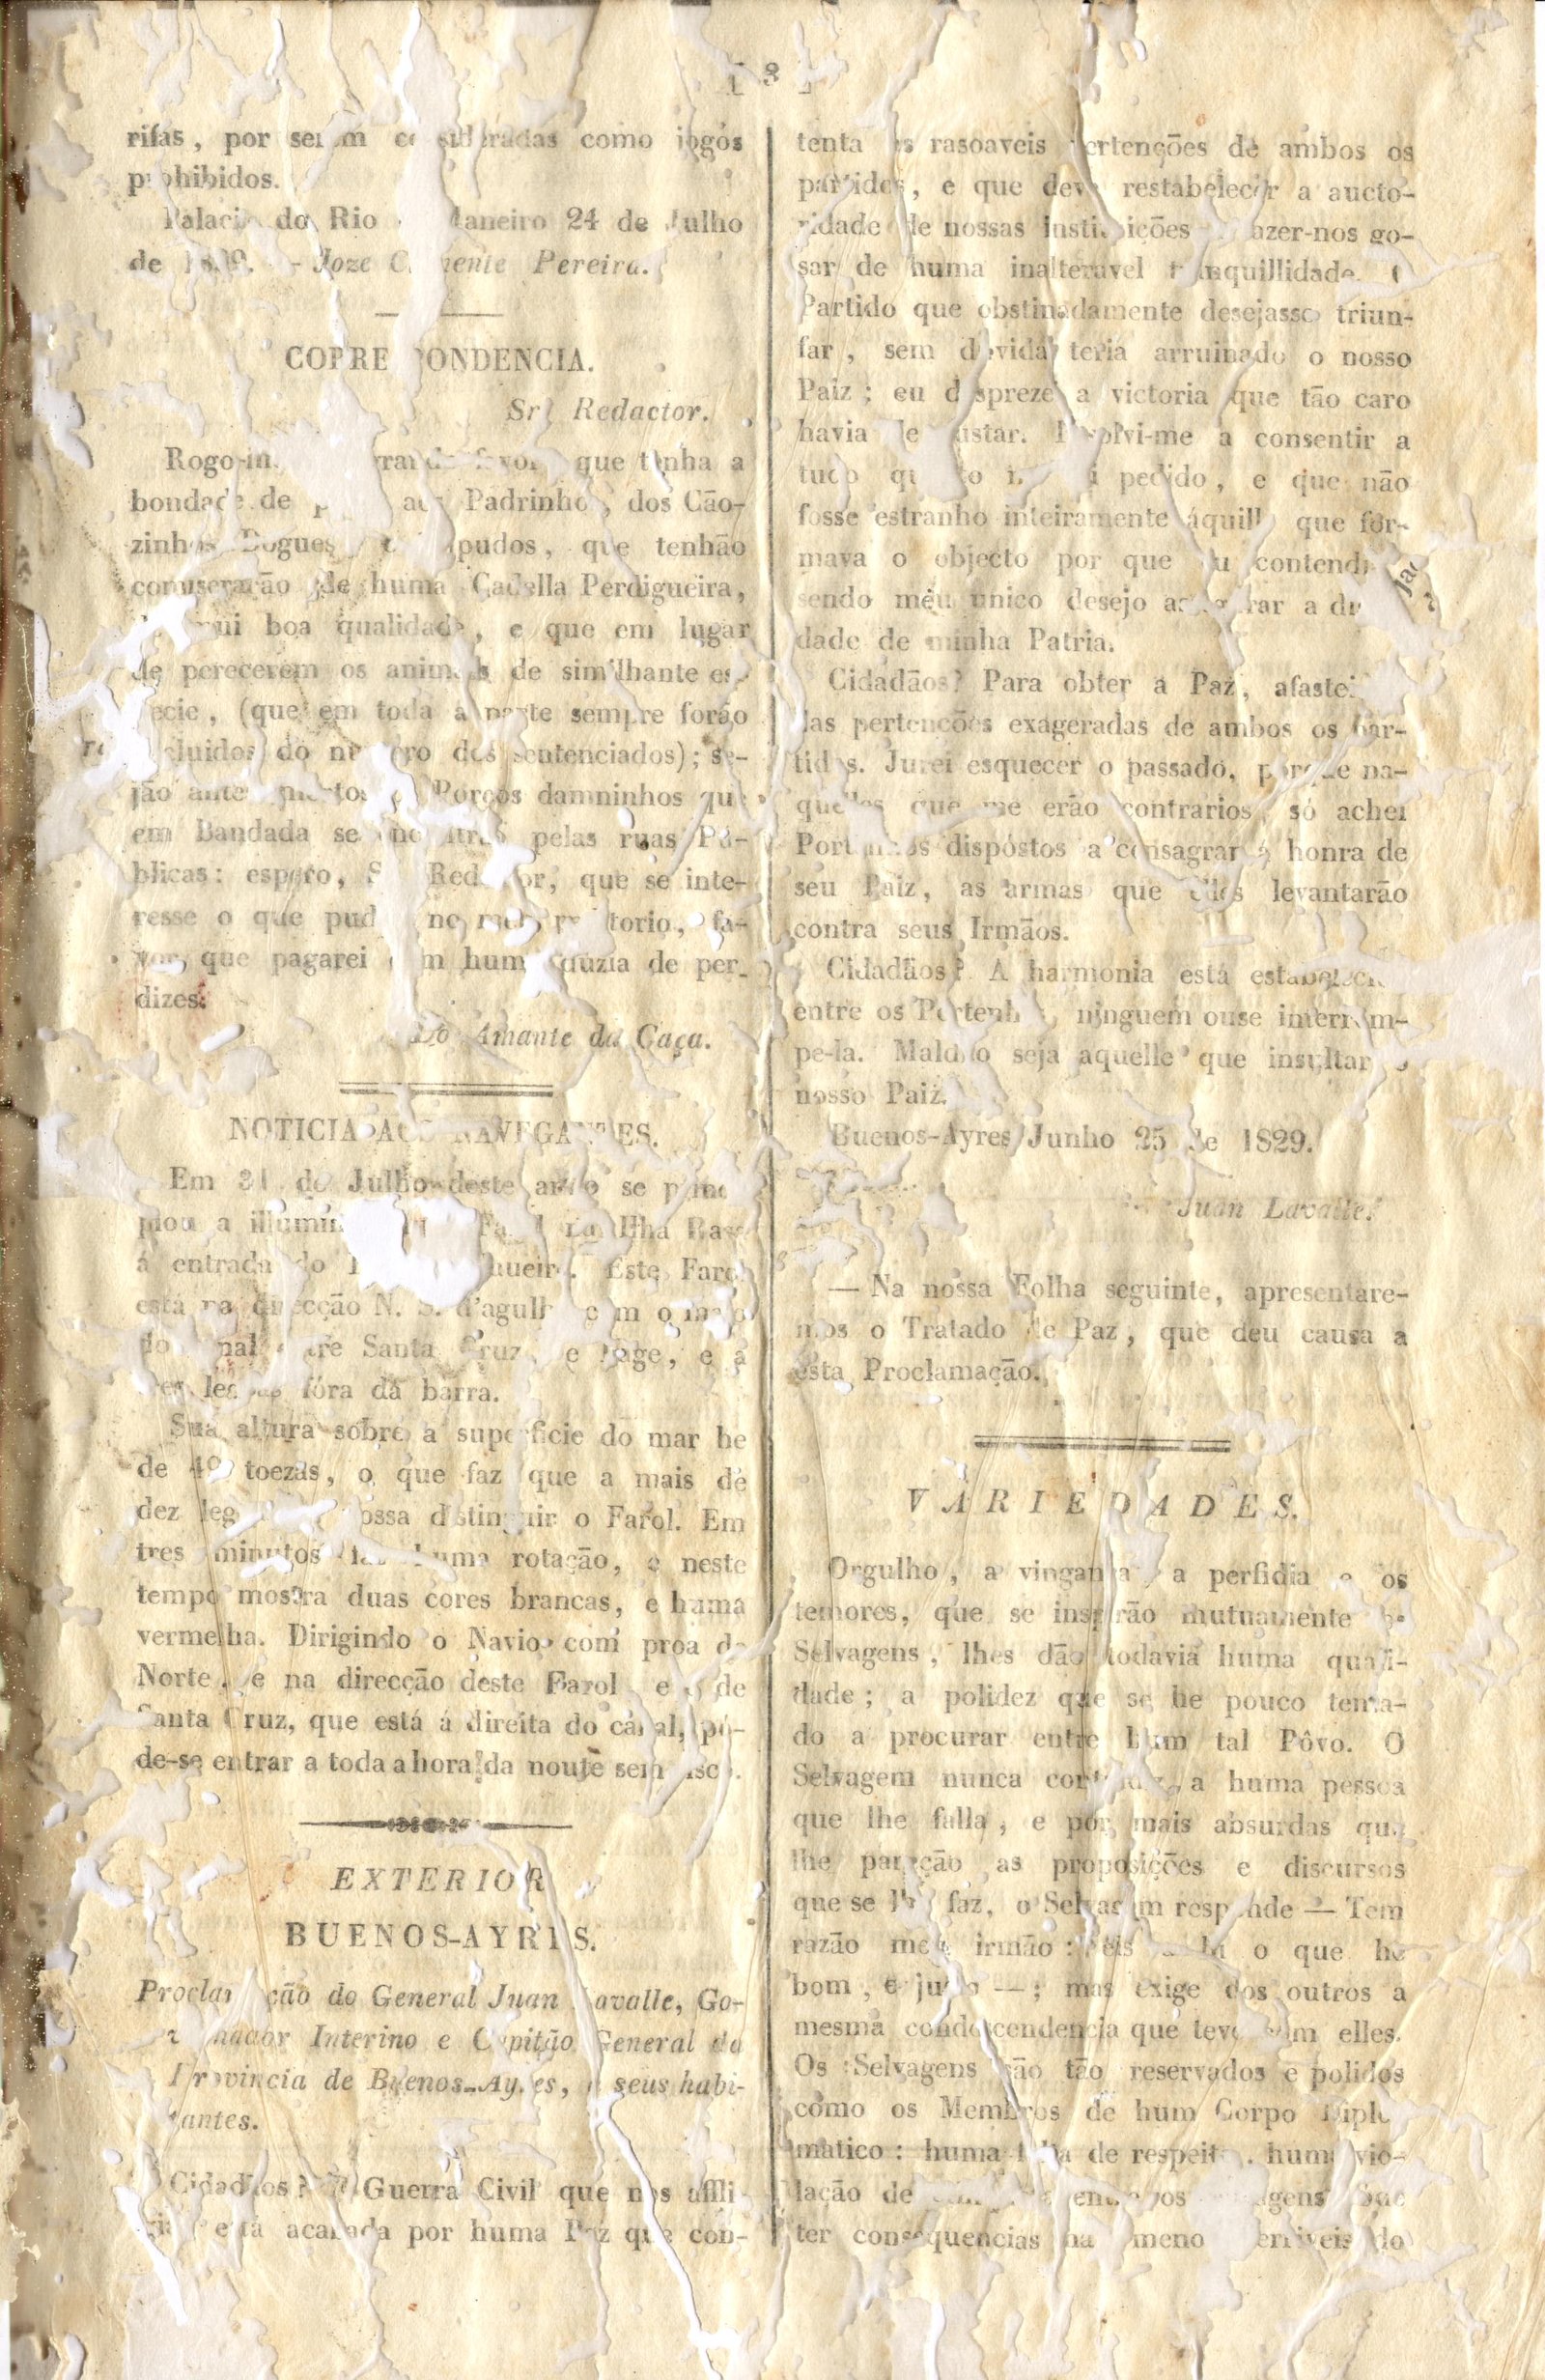 [ 3 ]
rifas, por serem consideradas como jogos
prohibidos.
Palacio do Rio Janeiro 24 de Julho
de 1829. — Joze Clemente Pereira.
CORRESPONDENCIA.
Sr. Redactor.
Rogo-lhe grande favor que tenha a
bondade de aos Padrinhos, dos Cão-
zinhos Dogues que tenhão
comiseração de huma Cadella Perdigueira,
de mui boa qualidade, e que em lugar
de perecerem os animaes de similhante es-
pecie, (que em toda a parte sempre forão
excluidos do numero dos sentenciados); se-
jão antes mortos os Porcos damninhos que
em Bandada se encontrão pelas ruas Pú-
blicas: espero, Sr. Redactor, que se inte-
resse o que puder torio, fa-
vor, que pagarei com huma duzia de per-
dizes.
Do Amante da Caça.
NOTICIA AOS NAVEGANTES.
Em 31 de Julho deste anno se princi-
piou a illuminar Farol da Ilha Rasa
á entrada do Rio Este Farol
está na direcção N. S. d'agulha com o meio
do canal entre Santa Cruz, e Lage, e a
tres legoas fóra da barra.
Sua altura sobre a superficie do mar he
de toezas, o que faz que a mais de
dez legoas possa distinguir o Farol. Em
tres minutos faz huma rotação, e neste
tempo mostra duas cores brancas, e huma
vermelha. Dirigindo o Navio com proa do
Norte, e na direcção deste Farol e o de
Santa Cruz, que está á direita do canal, pó-
de-se entrar a toda a hora da noute sem risco.
EXTERIOR
BUENOS-AYRES.
Proclamação do General Juan Lavalle, Go-
vernador Interino e Capitão General da
Provincia de Buenos-Ayres, a seus habi-
tantes.
Cidadãos? A Guerra Civil que nos affli-
gia está acabada por huma Paz que con-
tenta as rasoaveis pertenções de ambos os
partidos, e que deve restabelecer a aucto-
ridade de nossas instituições fazer-nos go-
sar de huma inalteravel tranquillidade. O
Partido que obstinadamente desejasse triun-
far, sem duvida teria arruinado o nosso
Paiz; eu desprezei a victoria que tão caro
havia de custar. Resolvi-me a consentir a
tudo quanto me foi pedido, e que não
fosse estranho inteiramente áquillo que for-
mava o objecto por que eu contendia
sendo meu unico desejo assegurar a
dade de minha Patria.
Cidadãos? Para obter a Paz, afastei
das pertenções exageradas de ambos os par-
tidos. Jurei esquecer o passado, porque na-
quelles que me erão contrarios, só achei
Portenhos dispostos a consagrar á honra de
seu Paiz, as armas que elles levantarão
contra seus Irmãos.
Cidadãos? A harmonia está estabelecida
entre os Portenhos, ninguem ouse interrom-
pe-la. Maldito seja aquelle que insultar o
nosso Paiz.
Buenos-Ayres Junho 25 de 1829.
Juan Lavalle.
— Na nossa Folha seguinte, apresentare-
mos o Tratado de Paz, que deu causa a
esta Proclamação.
VARIEDADES.
Orgulho, a vingança, a perfidia e os
temores, que se inspirão mutuamente os
Selvagens, lhes dão todavia huma quali-
dade; a polidez que se he pouco tenta-
do a procurar entre hum tal Pôvo. O
Selvagem nunca contradiz a huma pessoa
que lhe falla, e por mais absurdas que
lhe pareção as proposições e discursos
que se lhe faz, o Selvagem responde — Tem
razão meu irmão: eis o que he
bom, e justo —; mas exige dos outros a
mesma condescendencia que teve com elles.
Os Selvagens são tão reservados e polidos
como os Membros de hum Corpo Diplo-
matico: huma falta de respeito, huma vio-
lação de entre os Selvagens
ter consequencias não menos terriveis do